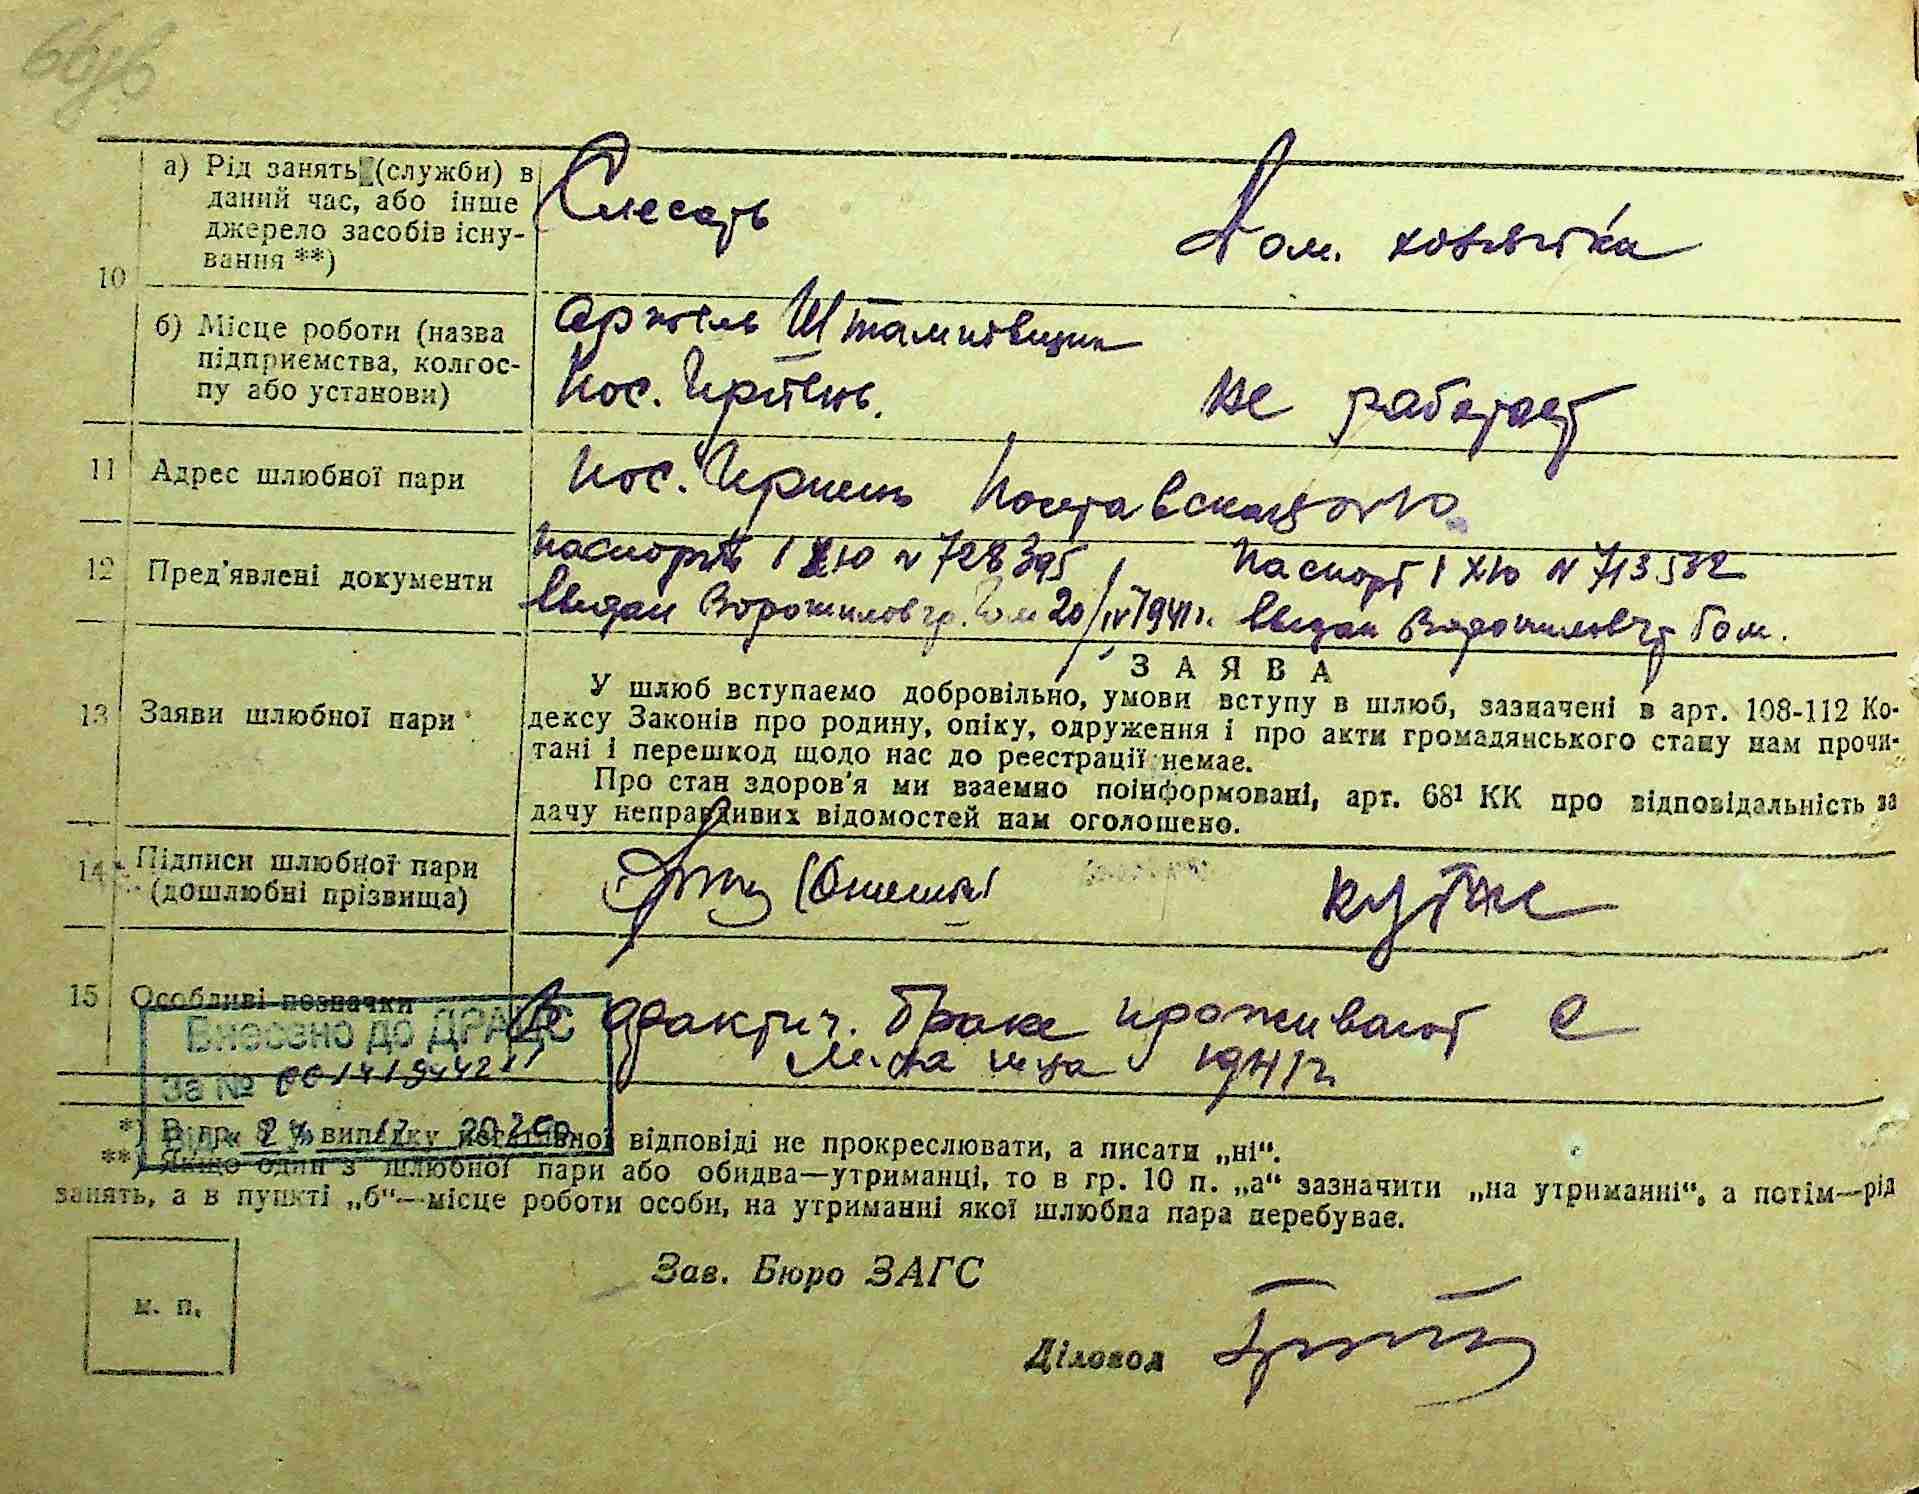 10 а) Рід занять (служби) в даний час, або інше джерело засобів існування **)
Слесарь
Дом. хозяйка
б) Місце роботи (назва підприємства, колгоспу або установи)
артель Штамповщик
пос. Ирпень.
не работает
11 Адрес шлюбної пари
пос. Ирпень
12 Пред'явлені документи
Паспорт I ХЮ № 728395
выдан Ворошиловгр. Гом 20/IV 1941 г.
Паспорт I ХЮ № 713532
выдан Ворошиловгр Гом.
13 Заяви шлюбної пари
ЗАЯВА
У шлюб вступаємо добровільно, умови вступу в шлюб, зазначені в арт. 108-112 Ко-
дексу Законів про родину, опіку, одруження і про акти громадянського стану нам прочи-
тані і перешкод щодо нас до реестрації немає.
Про стан здоров'я ми взаемно поінформовані, арт. 68¹ КК про відповідальність за
дачу неправдивих відомостей нам оголошено.
14 Підписи шлюбної пари
(дошлюбні прізвища)
15 Особливі позначки
В фактич. браке проживают с
м-ца 1941 г.
Внесено до ДРАЦС
За №
*) В випадку негативної відповіді не прокреслювати, а писати „ні“.
**) Якщо один з шлюбної пари або обидва—утриманці, то в гр. 10 п. „а“ зазначити „на утриманні“, а потім—рід
занять, а в пункті „б“—місце роботи особи, на утриманні якої шлюбна пара перебуває.
Зав. Бюро ЗАГС
м. п.
Діловод